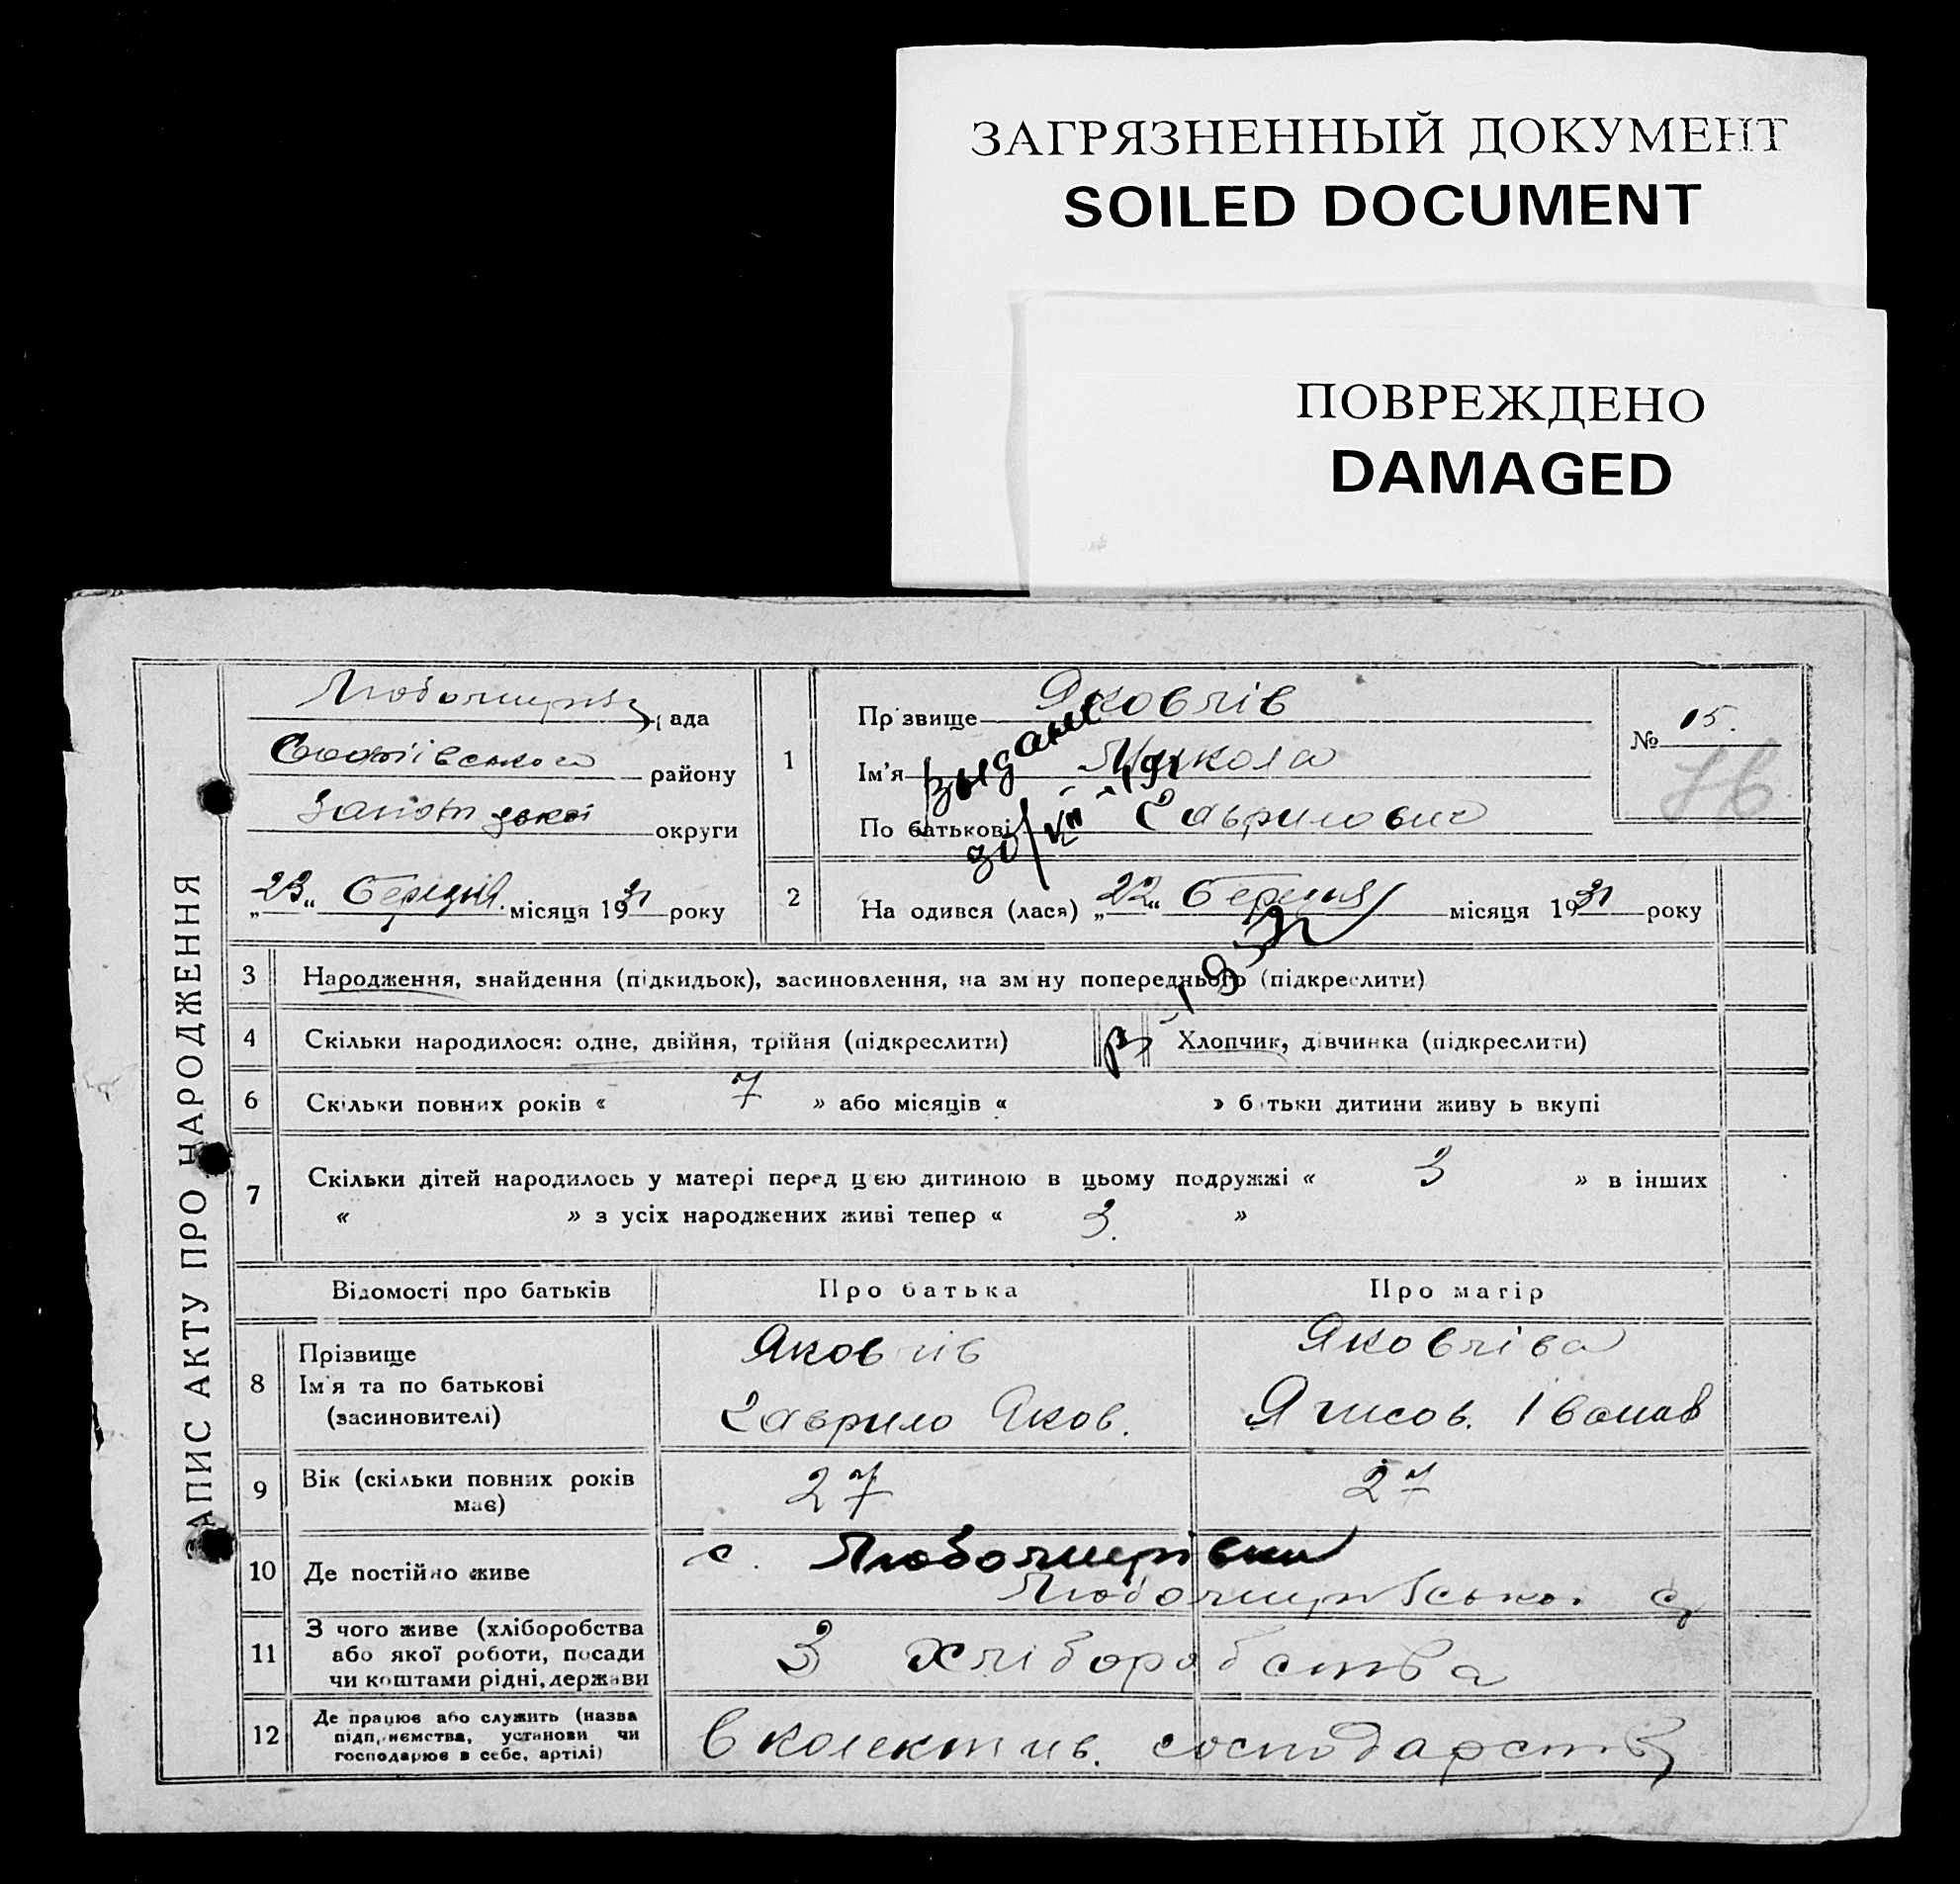 ЗАГРЯЗНЕННЫЙ ДОКУМЕНТ
SOILED DOCUMENT
ПОВРЕЖДЕНО
DAMAGED
АПИС АКТУ ПРО НАРОДЖЕННЯ
ада
району
округи
„23“ Березня місяця 1931 року
1
Прізвище Яковлів
Ім'я Микола
По батькові Гаврилович
№ 15.
2
На одився (лася) „22“ Березня місяця 1931 року
3 Народження, знайдення (підкидьок), засиновлення, на зміну попереднього (підкреслити)
4 Скільки народилося: одне, двійня, трійня (підкреслити) Хлопчик, дівчинка (підкреслити)
6 Скільки повних років « 7 » або місяців « » батьки дитини живу ь вкупі
7 Скільки дітей народилось у матері перед цією дитиною в цьому подружжі « 3 » в інших
« » з усіх народжених живі тепер « 3. »
Відомості про батьків Про батька Про матір
8 Прізвище Яковлів Яковліва
Ім'я та по батькові Гаврило Яков.
(засиновителі)
9 Вік (скільки повних років має) 27 27
10 Де постійно живе с. Любомирівки
11 З чого живе (хліборобства
або якої роботи, посади
чи коштами рідні, держави
З хліборобства
12 Де працює або служить (назва
підприємства, установи чи
господарює в себе, артілі)
В колектив. господарств